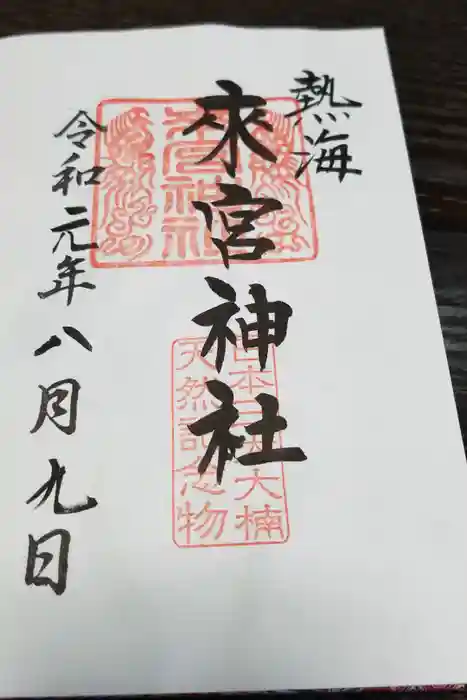 熱海
來宮神社
令和元年八月九日
來宮神社
日本三大楠
天然記念物